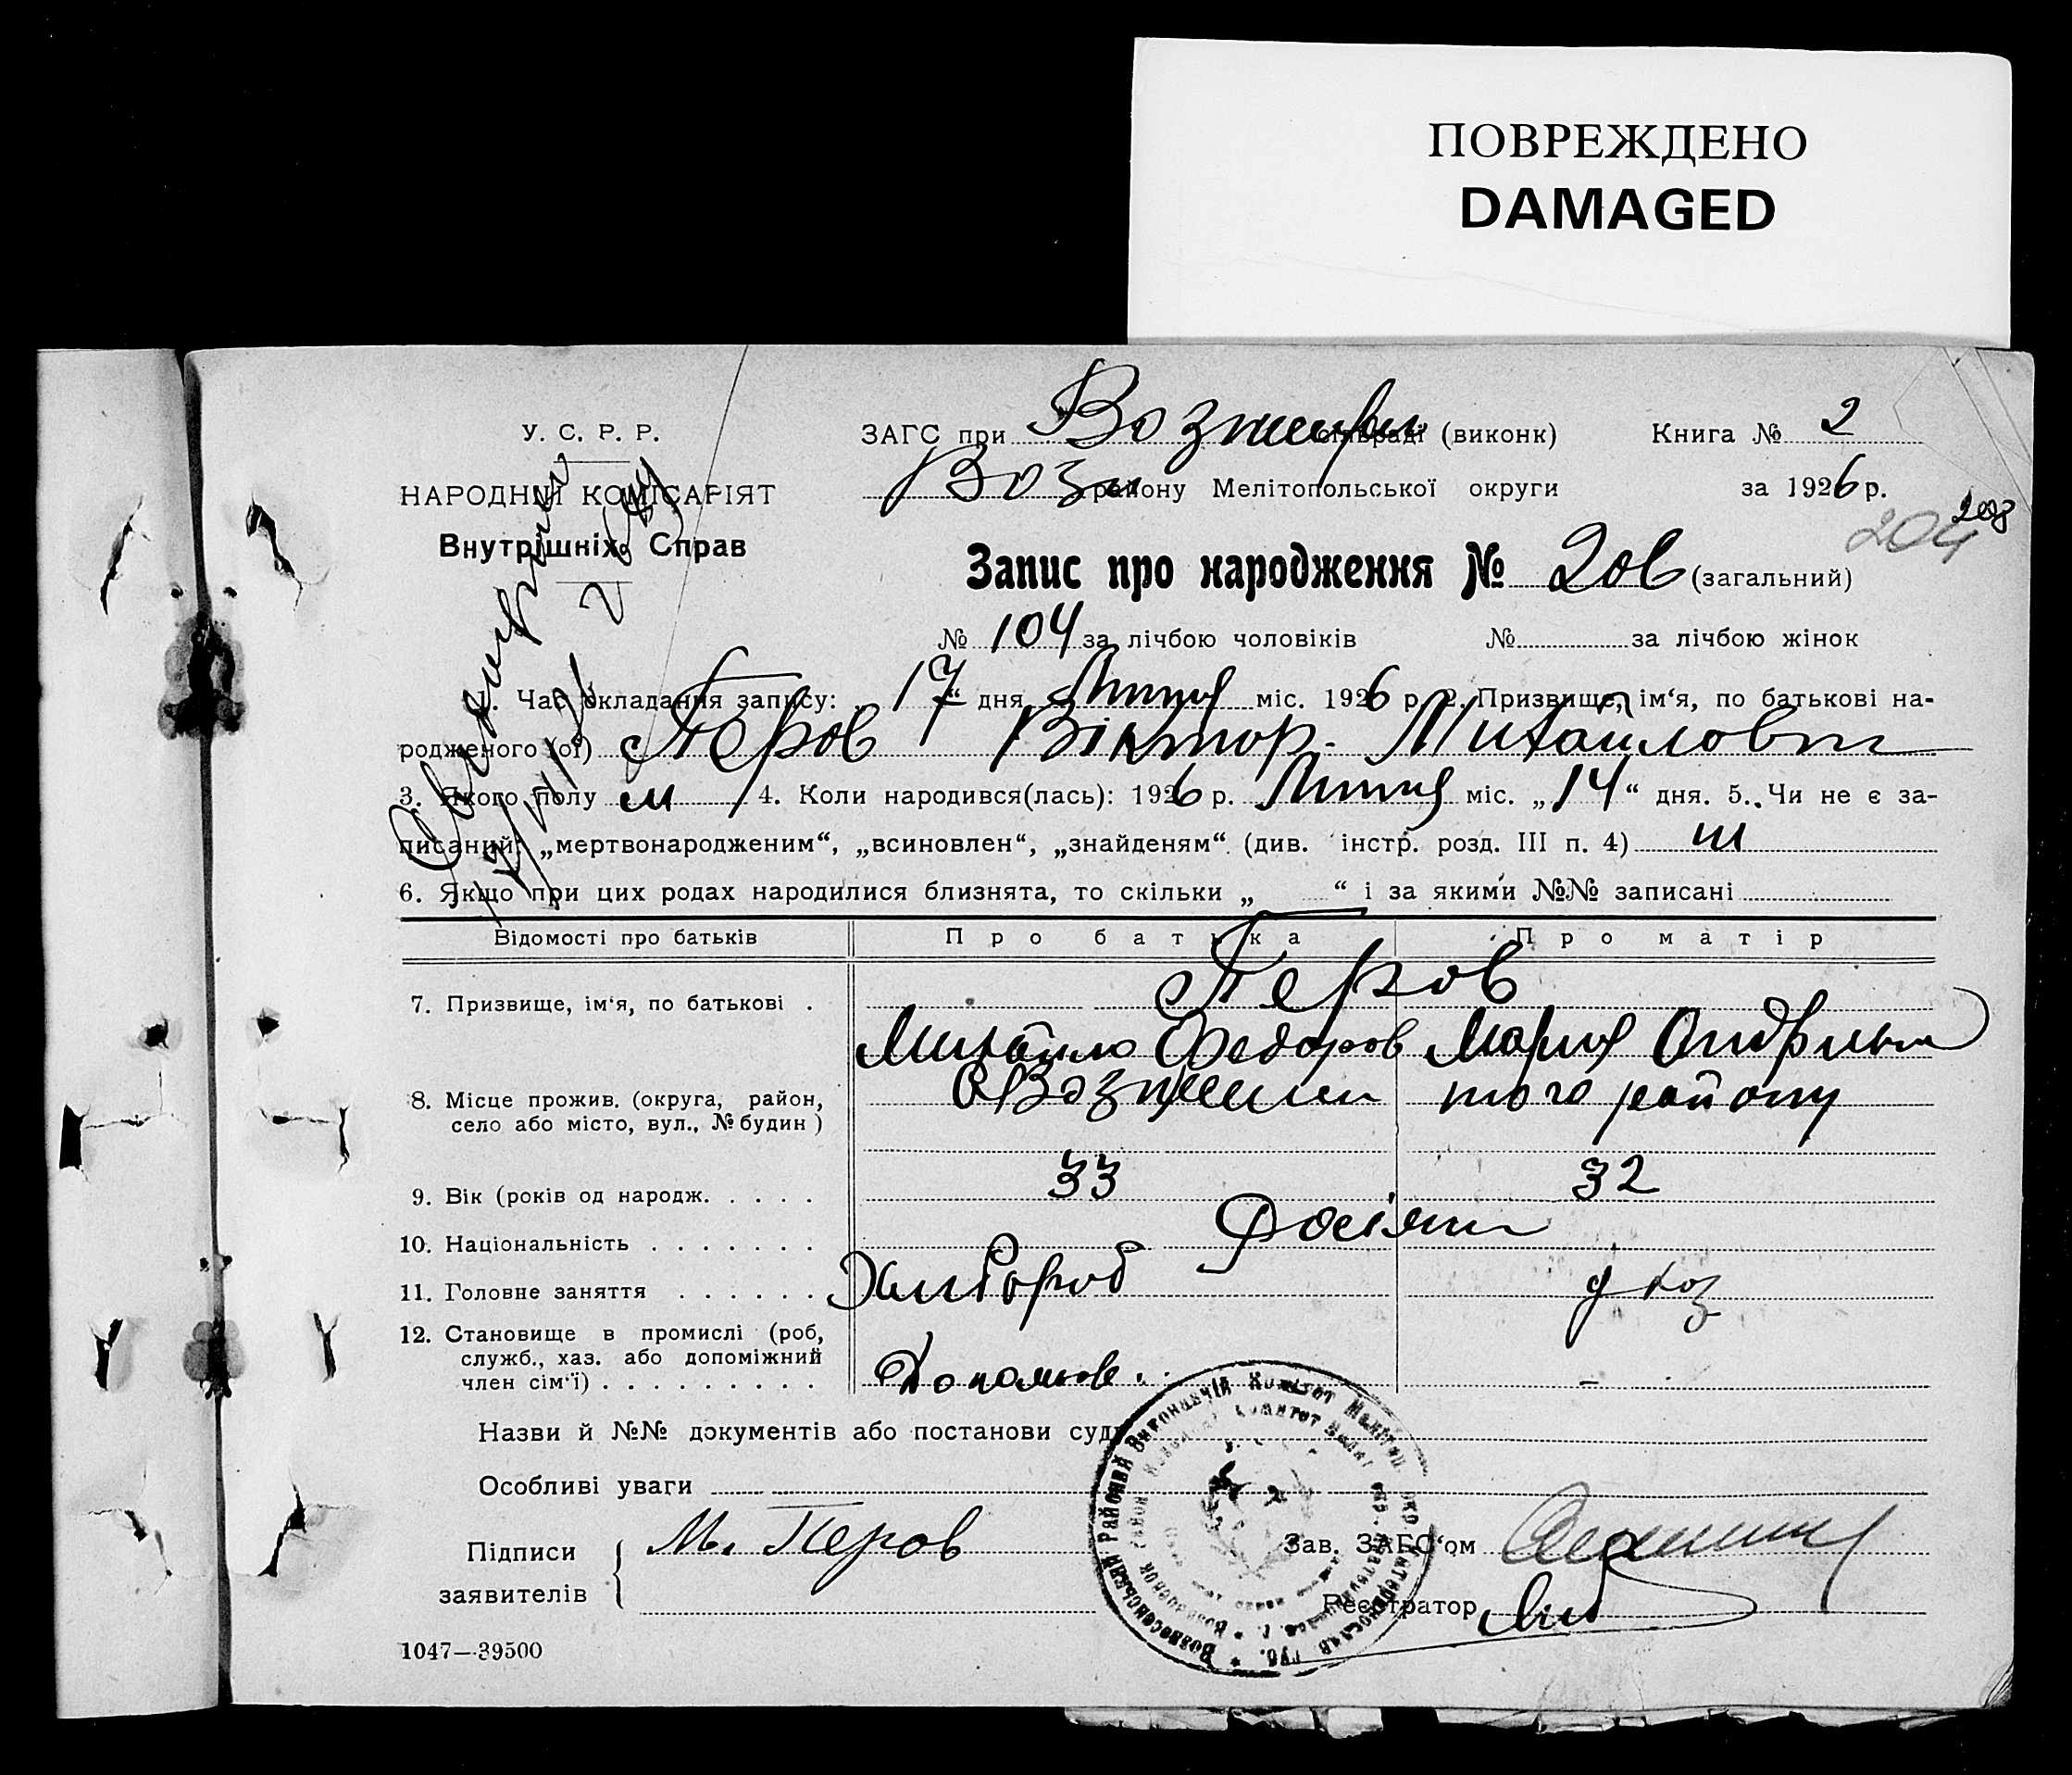 ПОВРЕЖДЕНО
DAMAGED
У. С. Р. Р.
НАРОДНІЙ КОМІСАРІЯТ
Внутрішніх Справ
ЗАГС при сільраді (виконк) Книга № 2
Воз району Мелітопольської округи за 1926 р.
204
Запис про народження № 206 (загальний)
№ 104 за лічбою чоловіків № за лічбою жінок
1. Час складання запису: 17 “ дня Липня міс. 1926 р. 2. Призвище, ім‘я, по батькові на-
родженого (ої) Перов Віктор Михайлович
3. Якого полу м 4. Коли народився(лась): 1926 р. Липня міс. „ 14 “ дня. 5. Чи не є за-
писаний: „мертвонародженим“, „всиновлен“, „знайденям“ (див. інстр. розд. III п. 4) ні
6. Якщо при цих родах народилися близнята, то скільки „ “ і за якими №№ записані
Відомості про батьків Про батька Про матір
7. Призвище, ім‘я, по батькові . Перов
Михайло Федоров Мария
8. Місце прожив. (округа, район, того району
село або місто, вул., № будин )
9. Вік (років од народж. . . . . 33 32
10. Національність . . . . . . . Росіяни
11. Головне заняття . . . . . . Хлібороб д хоз
12. Становище в промислі (роб,
служб., хаз. або допоміжний
член сім‘ї) . . . . . . . . . -
Назви й №№ документів або постанови суду
Особливі уваги
Підписи М. Перов Зав. ЗАГС‘ом
заявителів Реєстратор
1047—39500